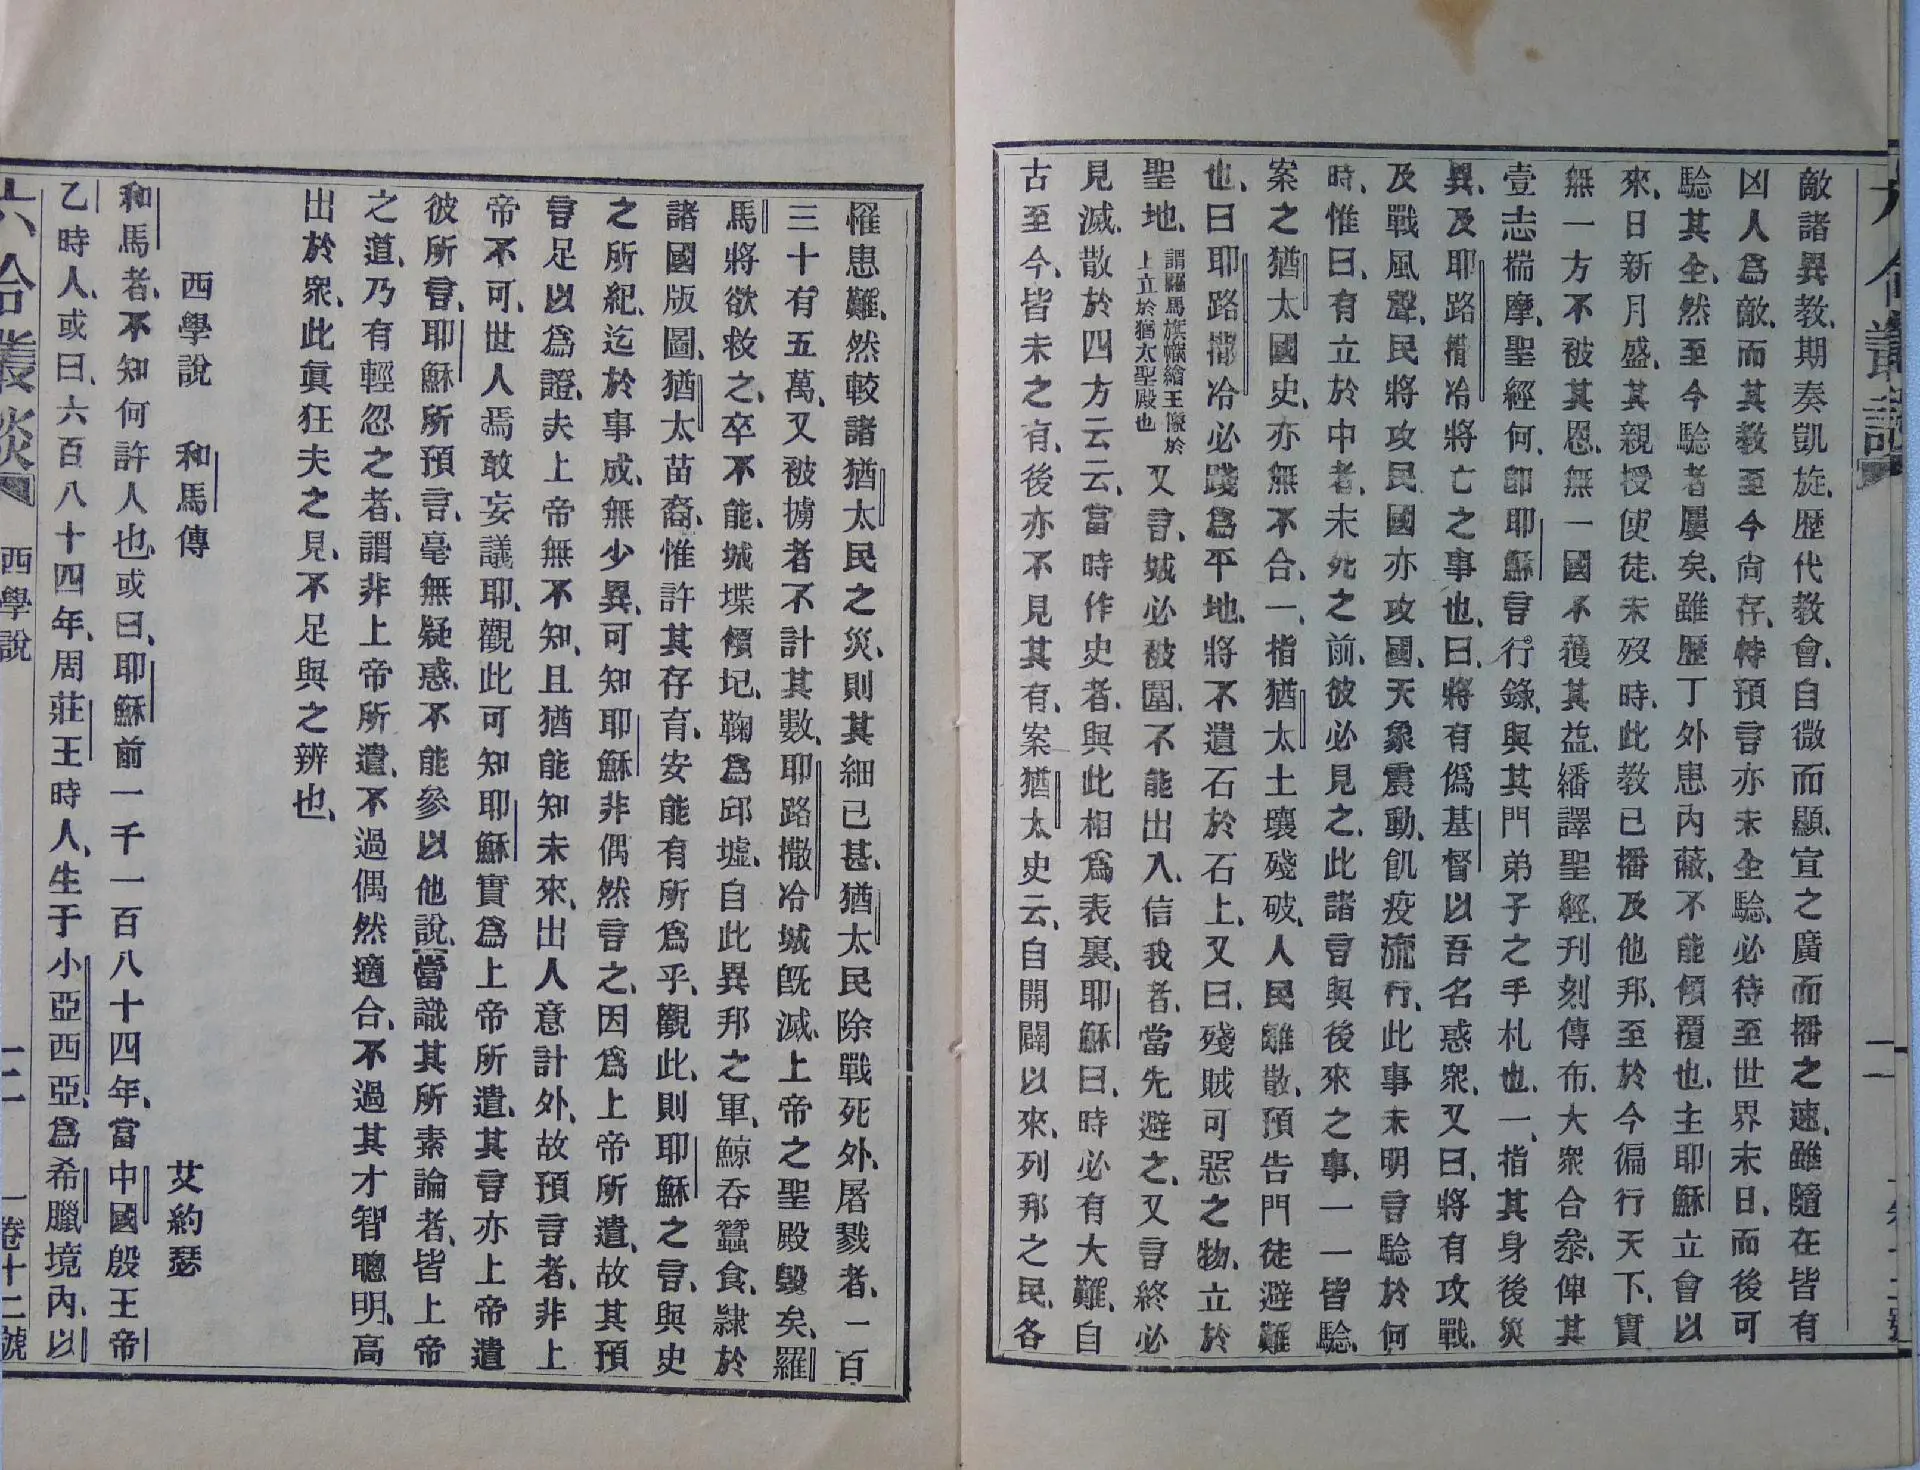 敵諸異教、期奏凱旋、歷代教會、自微而顯、宣之廣而播之速、雖隨在皆有
凶人爲敵、而其教至今尙存、特預言亦未全驗、必待至世界末日、而後可
驗其全、然至今驗者屢矣、雖歷丁外患內蔽、不能傾覆也、主耶穌立會以
來、日新月盛、其親授使徒、未歿時、此教已播及他邦、至於今徧行天下、實
無一方不被其恩、無一國不獲其益、繙譯聖經、刊刻傳布、大衆合叅、俾其
壹志揣摩、聖經何、卽耶穌言行錄、與其門弟子之手札也、一、指其身後災
異、及耶路撒冷將亡之事也、曰、將有僞基督以吾名惑衆、又曰、將有攻戰、
及戰風聲、民將攻民、國亦攻國、天象震動、飢疫流行、此事未明言驗於何
時、惟曰、有立於中者、未死之前、彼必見之、此諸言與後來之事、一一皆驗、
案之猶太國史、亦無不合、一、指猶太土壤殘破、人民離散、預告門徒避難
也、曰耶路撒冷必踐爲平地、將不遺石於石上、又曰、殘賊可惡之物、立於
聖地、謂羅馬旌幟繪王像於上立於猶太聖殿也又言、城必被圍、不能出入、信我者、當先避之、又言終必
見滅、散於四方云云、當時作史者、與此相爲表裏、耶穌曰、時必有大難、自
古至今、皆未之有、後亦不見其有、案猶太史云、自開闢以來、列邦之民、各
罹患難、然較諸猶太民之災、則其細已甚、猶太民除戰死外、屠戮者、一百
三十有五萬、又被擄者不計其數、耶路撒冷城旣滅、上帝之聖殿毀矣、羅
馬將欲救之、卒不能、城堞傾圮、鞠爲邱墟、自此異邦之軍、鯨吞蠶食、隸於
諸國版圖、猶太苗裔、惟許其存育、安能有所爲乎、觀此、則耶穌之言、與史
之所紀、迄於事成、無少異、可知耶穌非偶然言之、因爲上帝所遣、故其預
言足以爲證、夫上帝無不知、且猶能知未來、出人意計外、故預言者、非上
帝不可、世人焉敢妄議耶、觀此可知耶穌實爲上帝所遣、其言亦上帝遣
彼所言、耶穌所預言、毫無疑惑、不能參以他說、當識其所素論者、皆上帝
之道、乃有輕忽之者、謂非上帝所遣、不過偶然適合、不過其才智聰明、高
出於衆、此眞狂夫之見、不足與之辨也、
西學說　和馬傳　艾約瑟
和馬者、不知何許人也、或曰、耶穌前一千一百八十四年、當中國殷王帝
乙時人、或曰、六百八十四年、周莊王時人、生于小亞西亞、爲希臘境內、以
六合叢談　西學說　三　一卷十二號